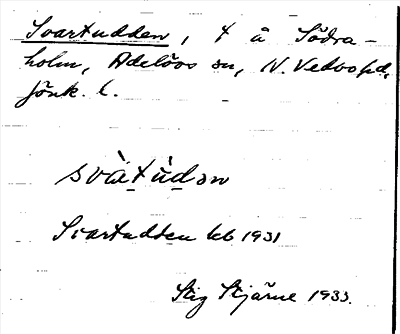 Svartudden, t å Södra-
holm, Adelövs sn, N. Vedbo hd,
Jönk. l.
svàtùdən
Svartudden kb 1931
Stig Stjärne 1933.